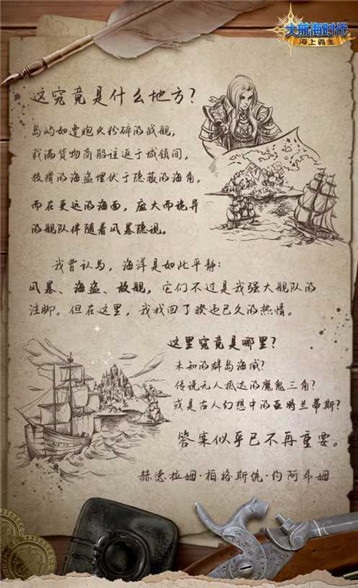 大航海时代
海上霸主
这究竟是什么地方？
岛屿如遭炮火粉碎的战舰，
我满货物商船往返于城镇间，
狡猾的海盗埋伏于隐蔽的海角，
而在更远的海面，庞大而诡异
的舰队伴随着风暴隐现。
我曾认为，海洋是如此平静：
风暴、海盗、敌舰，它们不过是我强大舰队的
注脚。但在这里，我找回了睽违已久的热情。
这里究竟是哪里？
未知的群岛海域？
传说无人抵达的魔鬼三角？
或是古人幻想中的亚特兰蒂斯？
答案似乎已不再重要。
赫德拉姆·柏格斯统·约阿希姆